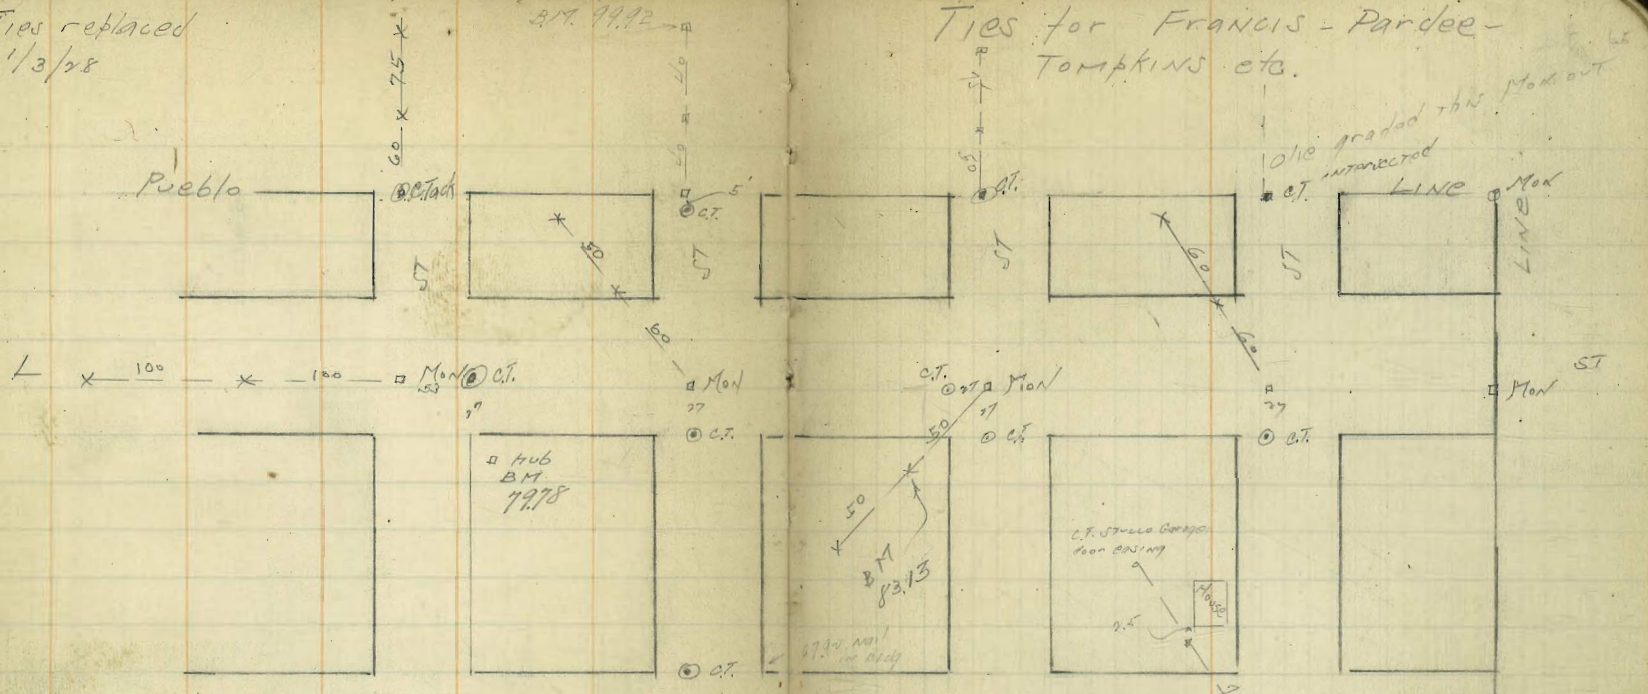 Ties replaced
1/3/28
B.M. 99.92
Ties for Francis - Pardee -
Tompkins etc.
75
60
40
40
50
Olie graded this Mon out
intersected
Pueblo
C.Tack
5'
C.T.
C.T.
C.T.
LINE
Mon
LINE
ST
50
ST
ST
60
ST
60
60
L
100
100
Mon
53
C.T.
27
Mon
27
C.T.
C.T.
27
Mon
27
C.T.
50
27
C.T.
Mon
ST
Hub
BM
79.78
50
BM
83.13
C.T. Stucco Garage
door casing
House
2.5
Nail
C.T.